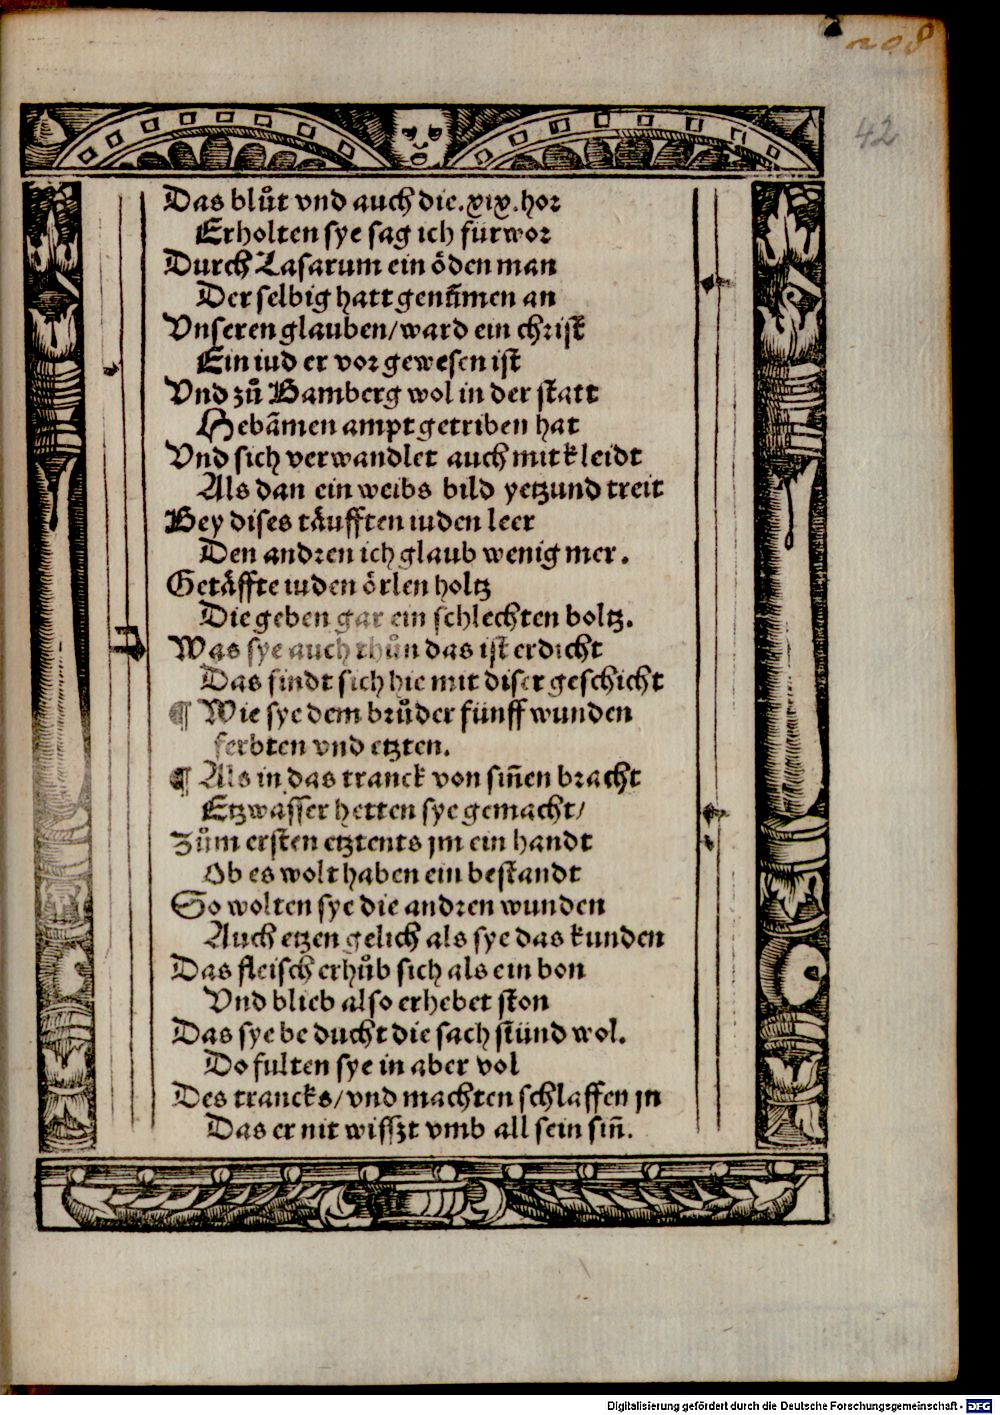 208
42
Das blůt vnd auch die.xix.hor
Erholten sye sag ich fürwor
Durch Lasarum ein öden man
Der selbig hatt genũmen an
Vnseren glauben/ward ein christ
Ein iud er vor gewesen ist
Vnd zů Bamberg wol in der statt
Hebãmen ampt getriben hat
Vnd sich verwandlet auch mit kleidt
Als dan ein weibs bild yetzund treit
Bey dises täufften iuden leer
Den andren ich glaub wenig mer.
Getäffte iuden örlen holtz
Die geben gar ein schlechten boltz.
Was sye auch thůn das ist erdicht
Das findt sich hie mit diser geschicht
¶ Wie sye dem brůder fünff wunden
ferbten vnd etzten.
¶ Als in das tranck von sin̄en bracht
Etzwasser hetten sye gemacht/
Zům ersten etztents jm ein handt
Ob es wolt haben ein bestandt
So wolten sye die andren wunden
Auch etzen gelich als sye das kunden
Das fleisch erhůb sich als ein bon
Vnd blieb also erhebet ston
Das sye be ducht die sach stünd wol.
Do fulten sye in aber vol
Des trancks/vnd machten schlaffen jn
Das er nit wisszt vmb all sein sin̄.
Digitalisierung gefördert durch die Deutsche Forschungsgemeinschaft - DFG